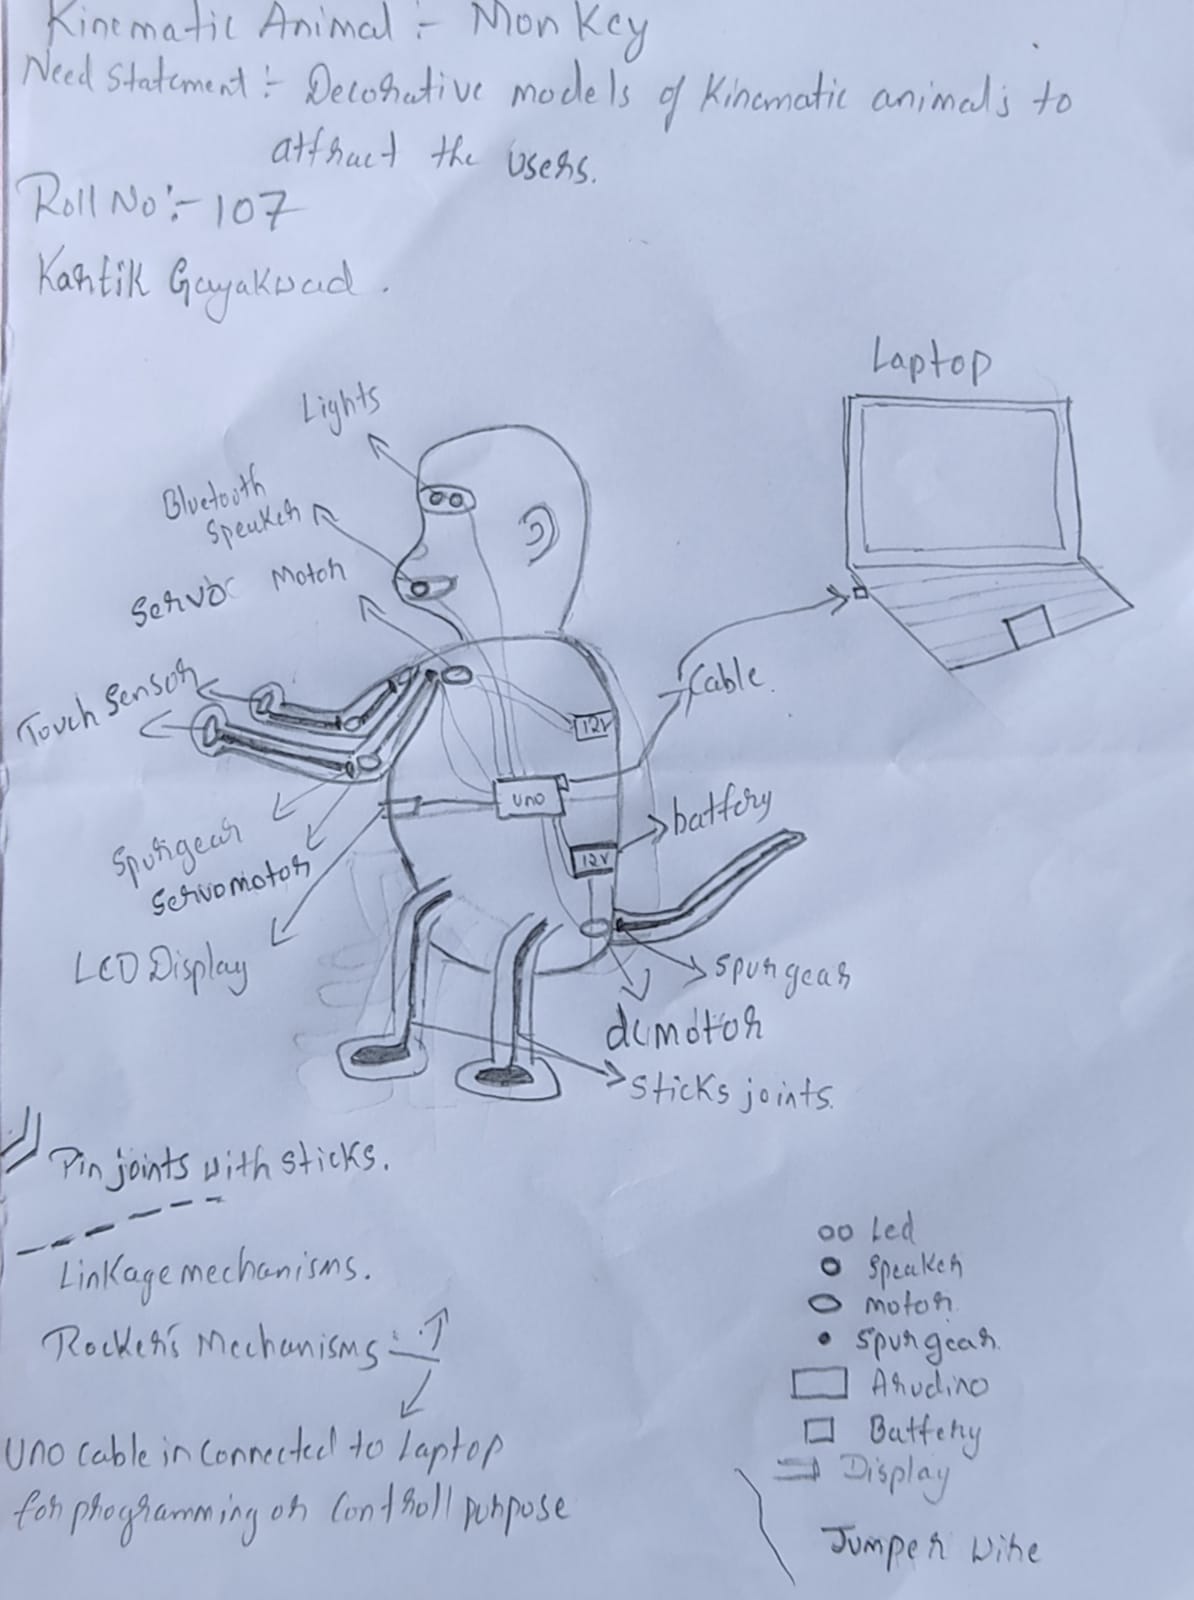 Kinematic Animal :- Monkey
Need Statement :- Decorative models of Kinematic animals to
attract the users.
Roll No :- 107
Kartik Gayakwad.
Laptop
Lights
Bluetooth
Speaker
Servo Motor
Touch Sensor
Cable.
12V
UNO
battery
12V
Spurgear
Servomotor
LCD Display
Spurgear
dcmotor
Sticks joints.
Pin joints with sticks.
Linkage mechanisms.
Rocker's Mechanisms :-
UNO cable in connected to laptop
for programming or controll purpose
Led
Speaker
Motor
Spurgear
Arudino
Battery
Display
Jumper wire